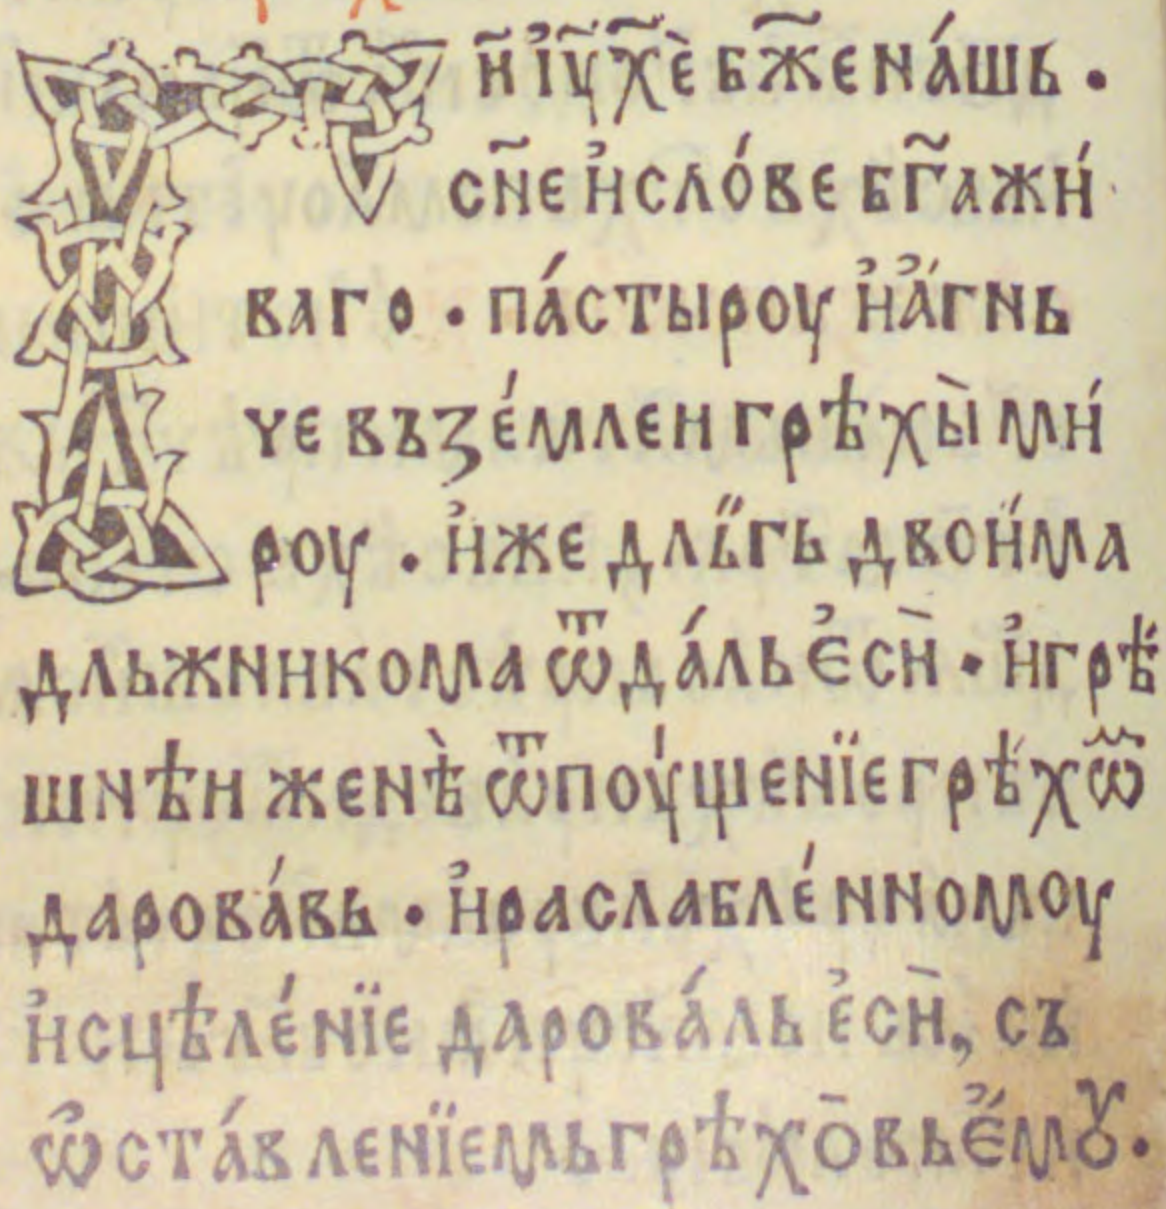 Гн҃и і҆у҃ х҃ѐ бж҃е на́шь ·
сн҃е и҆ сло́ве бг҃а жи́
ваго · па́стыроу и҆ а҆́гнь
че въꙁе́млеи грѣхы̀ ми́
роу · и҆же дль̋гь двои̋ма
дльжникома ѿда́ль є҆сѝ · и҆ грѣ́
шнѣи женѣ̀ ѿпоу́щенїе грѣ́хѡⷨ
дарова́вь · и҆ раслабле́нномоу
и҆сцѣле́нїе дарова́ль є҆сѝ, съ
ѡ҆ста́вленїемь грѣхо̄вь є҆́мꙋ ·